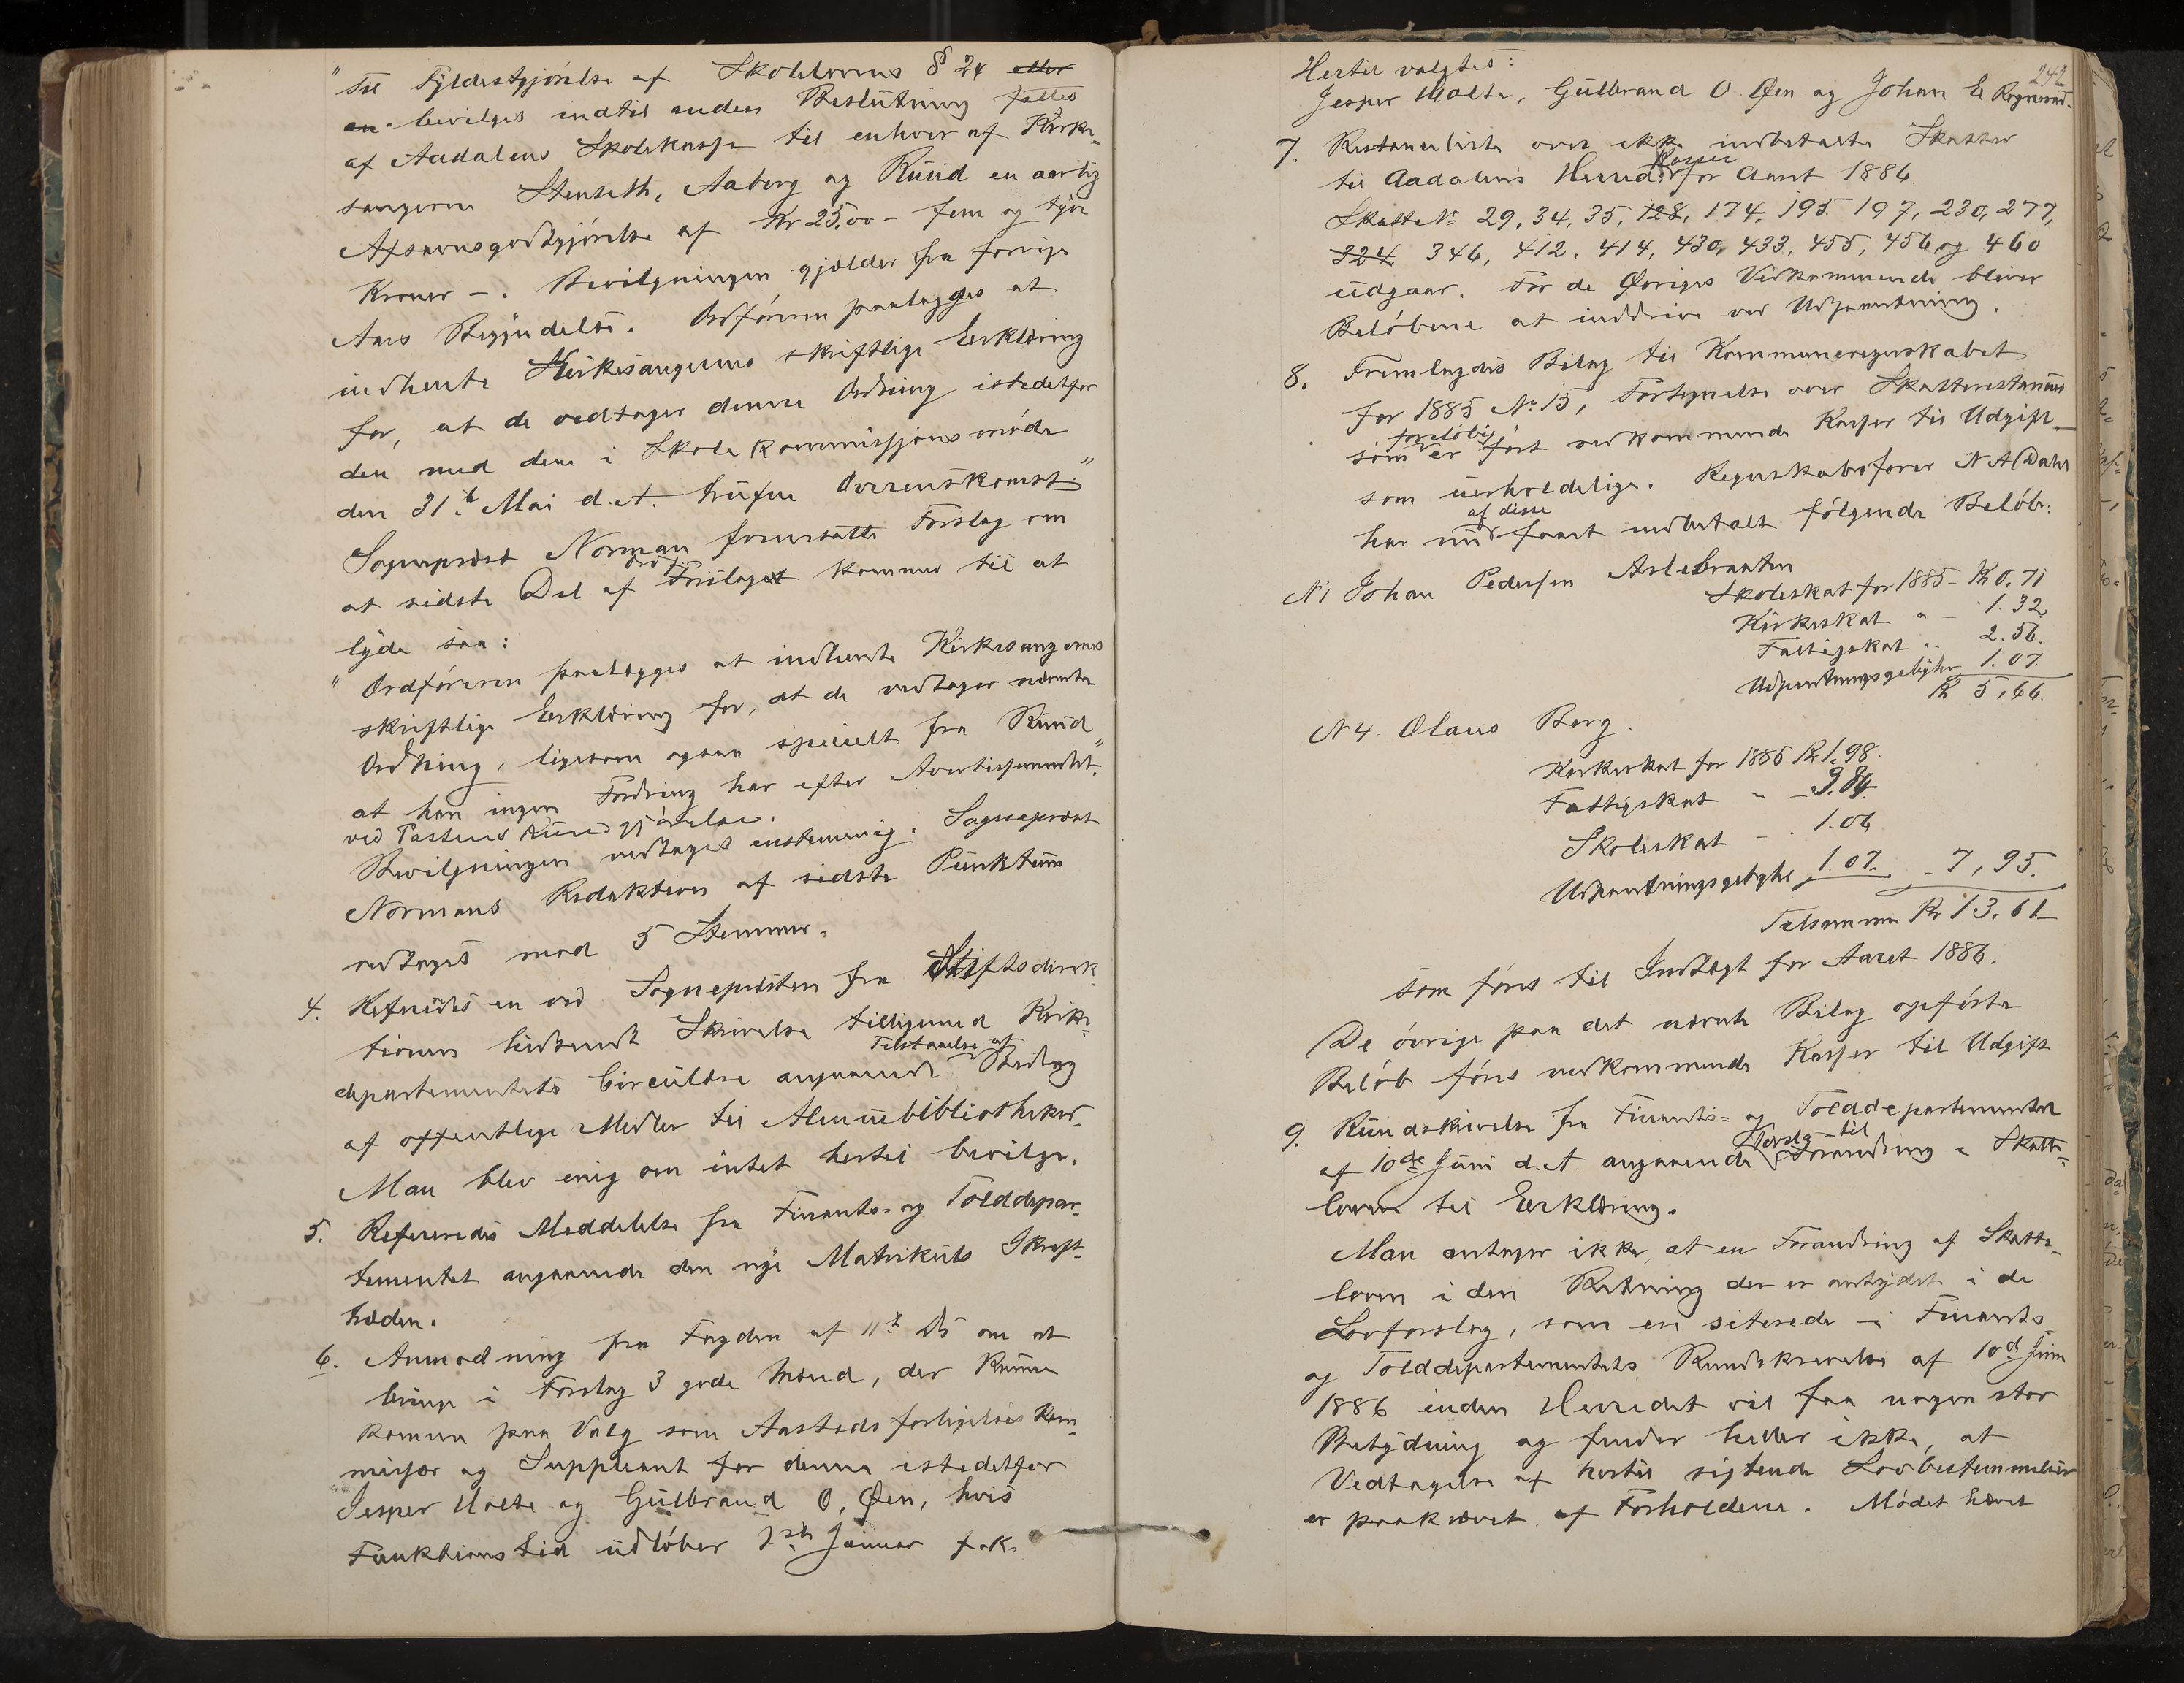 "Til Fyldestgjørelse af Skolelovens § 24 eller
an bevilges indtil anden Beslutning fattes
af Aadalens Skolekasse til enhver af Kirke-
sangerne Stenseth, Aaberg og Ruud en aarlig
Afsavnsgodtgjørelse af Kr 25,00 - fem og tyve
Kroner -. Bevilgningen gjælder fra forrige
Aars Begyndelse. Ordføreren paalægges at
indhente Kirkesangernes skriftlige Erklæring
for, at de vedtager denne Ordning istedetfor
den med dem i Skolekommissjonsmøde
den 31te Mai d.A. trufne Overenskomst."
Sognepræst Norman fremsatte Forslag om
at sidste Del af Forslaget kommer til at
lyde saa:
"Ordføreren paalægges at indhente Kirkesangernes
skriftlige Erklæring for, at de vedtager nævnte
Ordning, ligesom ogsaa specielt fra Ruud
at han ingen Fordring har efter Avertissementet"
ved Postens Kundgjørelse.
Bevilgningen vedtaget enstemmig. Sognepræst
Normans Redaktion af sidste Punktum
vedtaget mod 5 Stemmer.
4. Refereredes en ved Sognepresten fra Stiftsdirek-
tionen hidsendt Skrivelse tilligemed Kirke-
departementets Circulære angaaende Tilstaaelse af Bidrag
af offentlige Midler til Almuebibliotheker.
Man blev enig om intet hertil bevilge.
5. Refereredes Meddelelse fra Finants- og Tolddepar-
tementet angaaende den nye Matrikuls Ikraft-
træden.
6. Anmodning fra Fogden af 11te Ds om at
bringe i Forslag 3 gode Mænd, der kunne
komme paa Valg som Aastedsforligelseskom-
missær og Suppleant for denne istedetfor
Jesper Malte og Gulbrand O. Øen, hvis
Funktionstid udløber 1ste Januar f.k.
242
Hertil valgtes:
Jesper Malte, Gulbrand O. Øen og Johan E
7. Restanceliste over ikke indbetalte Skatter
til Aadalens Herreds Kasser for Aaret 1886.
Skatte No 29, 34, 35, 128, 174, 195. 197, 230, 277,
324. 346, 412. 414, 430, 433, 455, 456 og 460
udgaar. For de Øvriges Vedkommende bliver
Beløbene at inddrive ved Udpantning.
8. Fremlagdes Bilag til Kommuneregnskabet
for 1885 No 15, Fortegnelse over Skatterestancer
som foreløbig er ført vedkommende Kasser til Udgift
som uerholdelige. Regnskabsfører N A Dahl
har af disse faaet indbetalt følgende Beløb:
N 1 Johan Pedersen Aslebraaten
Skoleskat for 1885 - Kr 0,71
Kirkeskat " - 1.32
Fattigskat " 2.56.
Udpantningsgebyhr 1.07.
Kr 5,66.
N 4. Olaus Berg.
Kirkeskat for 1885 Kr 1.98.
Fattigskat " - 3.84
Skoleskat - . 1.06
Udpantningsgebyhr 1.07. - 7,95.
Tilsammen Kr 13.61
som føres til Indtægt for Aaret 1886.
De øvrige paa det nævnte Bilag opførte
Beløb føres vedkommende Kasser til Udgift
9. Rundskrivelse fra Finants- og Tolddepartementet
af 10de Juni d.A. angaaende Forslag til Forandring i Skatte-
loven til Erklæring.
Man antager ikke, at en Forandring af Skatte-
loven i den Retning der er antydet i de
Lovforslag, som er siterede i Finants
og Tolddepartementets Rundskrivelse af 10de Juni
1886 inden Herredet vil faa nogen stor
Betydning og finder heller ikke, at
Vedtagelse af hertil sigtende Lovbestemmelser
er paakrævet af Forholdene. Mødet hævet